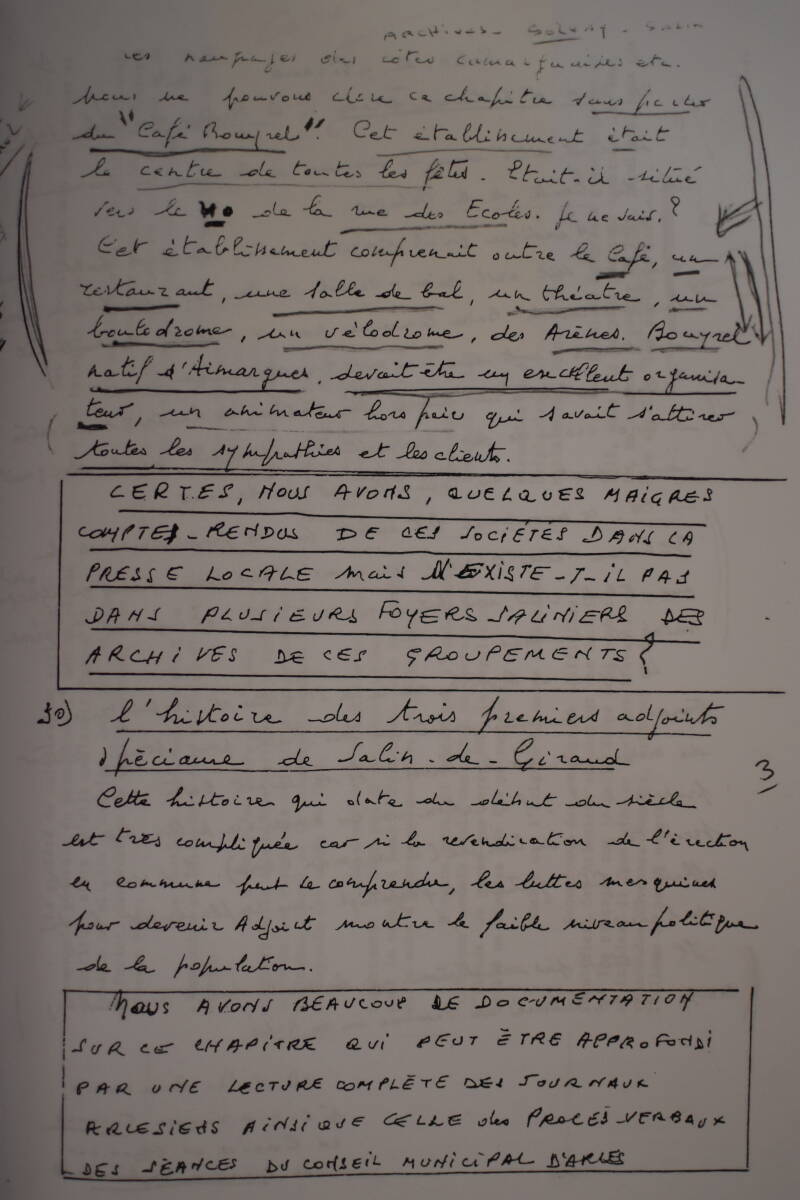 ARCHIVES - SOLVAY - SALIN
des côtes camarguaises etc.
Nous ne pouvons clore ce chapitre sans parler
du "Café Bouyrel". Cet établissement était
le centre de toutes les fêtes. Etait-il situé
vers le No de la rue des Ecoles. Je ne sais.?
Cet établissement comprenait outre le Café, un
restaurant, une salle de bal, un théatre, un
boulodrome, un vélodrome, des Arènes. Bouyrel
natif d'Aimargues, devait être un excellent organisa-
teur, un animateur hors paix qui savait s'attirer
toutes les sympathies et les clients.
CERTES, NOUS AVONS, QUELQUES MAIGRES
COMPTES-RENDUS DE CES SOCIÉTÉS DANS LA
PRESSE LOCALE mais N'EXISTE-T-IL PAS
DANS PLUSIEURS FOYERS SALINIERS DES
ARCHIVES DE CES GROUPEMENTS ?
10) l'histoire des trois premiers adjoints
spéciaux de Salin-de-Giraud
3
Cette histoire qui date du début du siècle
est très compliquée car si la revendication de l'érection
en commune peut se comprendre, les luttes mesquines
pour devenir Adjoint montre le faible niveau politique
de la population.
Nous AVONS BEAUCOUP DE DOCUMENTATION
SUR CE CHAPITRE QUI PEUT ÊTRE APPROFONDI
PAR UNE LECTURE COMPLÈTE DES JOURNAUX
ARLESIENS AINSI QUE CELLE des PROCÈS-VERBAUX
DES SÉANCES DU CONSEIL MUNICIPAL D'ARLES